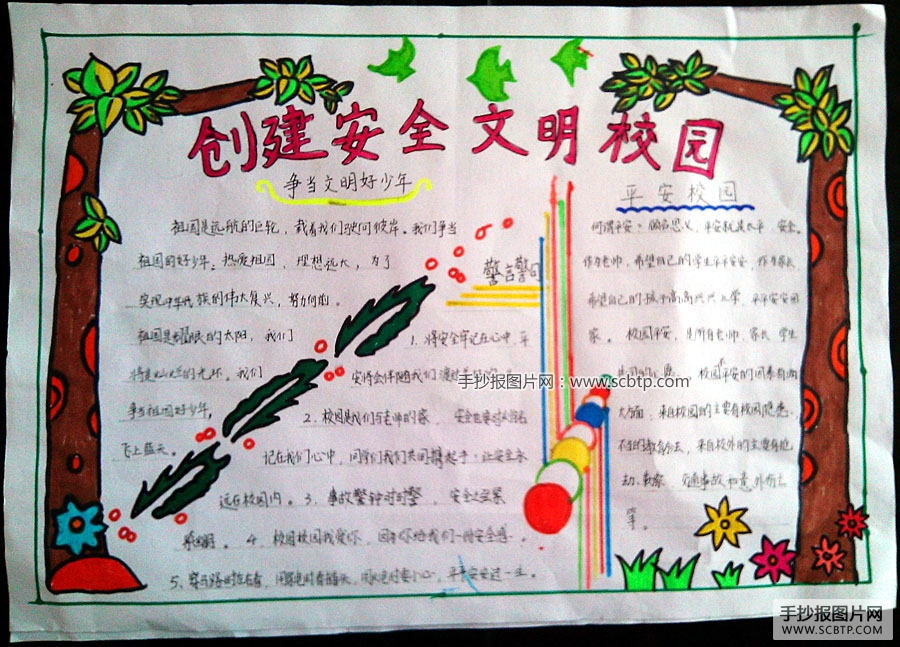 创建安全文明校园
争当文明好少年
祖国是远航的巨轮，载着我们驶向彼岸。我们争当
祖国的好少年：热爱祖国，理想远大，为了
实现中华民族的伟大复兴，努力向前。
祖国是耀眼的太阳，我们
将是灿烂的光环。我们
争当祖国好少年，
飞上蓝天。
警言警句
1、将安全牢记在心中，平
安将会伴随我们
2、校园是我们与老师的家，安全
记在我们心中，同学们我们共同携起手：让安全永
远在校园内。3、事故警钟时时鸣，安全之弦紧
紧绷。4、校园校园我爱你，因为你给我们一份安全感。
5、穿马路时左右看，用电时
平平安安过一生。
平安校园
何谓平安：顾名思义，平安就是太平，安全。
作为老师，希望自己的学生平平安安，作为家长
希望自己的孩子高高兴兴上学，平平安安回
家。校园平安，是所有老师，家长，学生
共同的心愿。校园不平安的因素有两
大方面，来自校园的主要有校园隐患、
不当的教育方法，来自校外的主要有
交通事故和意外伤亡
等。
手抄报图片网：www.scbtp.com
手抄报图片网
WWW.SCBTP.COM